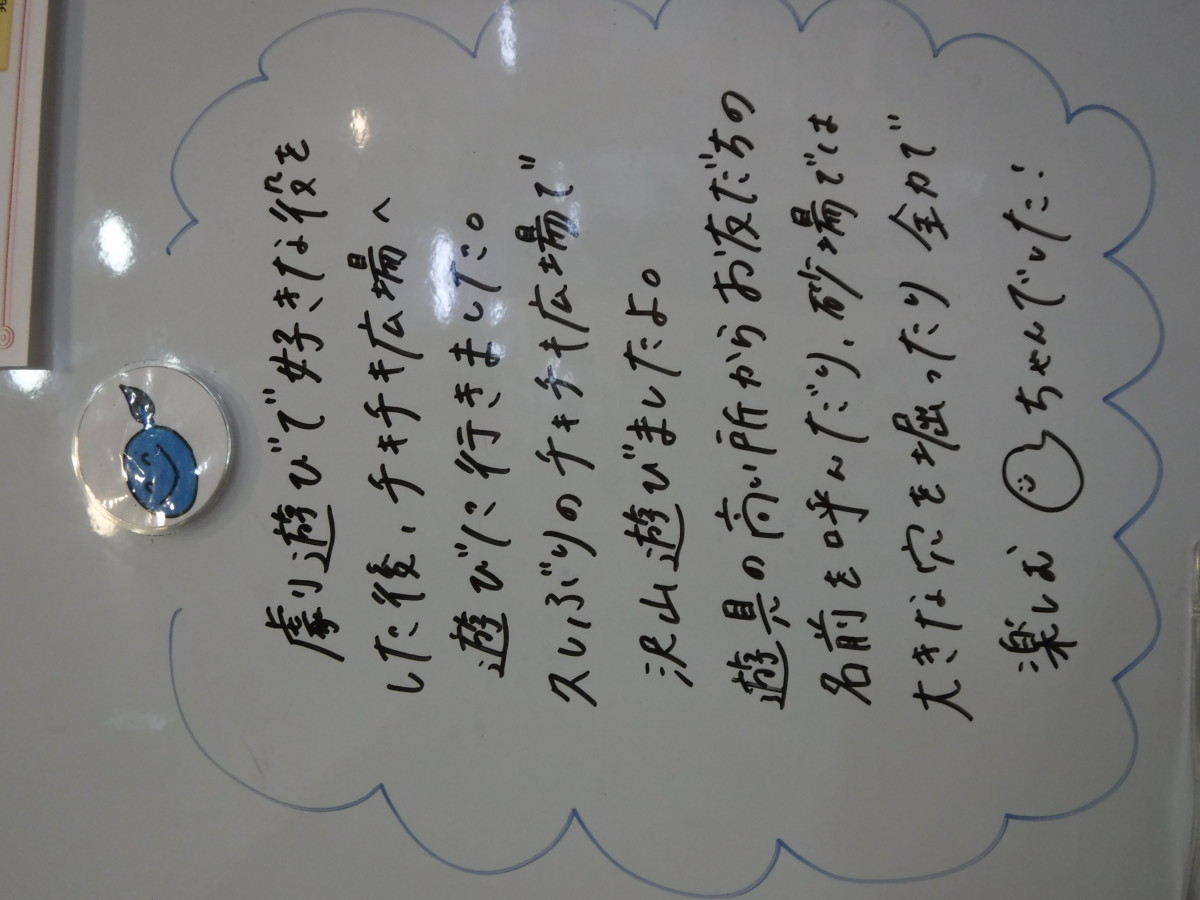 劇遊びで好きな役を
した後、チキチキ広場へ
遊びに行きました。
久しぶりのチキチキ広場で
沢山遊びましたよ。
遊具の高い所からお友だちの
名前を呼んだり、砂場では
大きな穴を堀ったり全力で
楽しむ ちゃんでした!